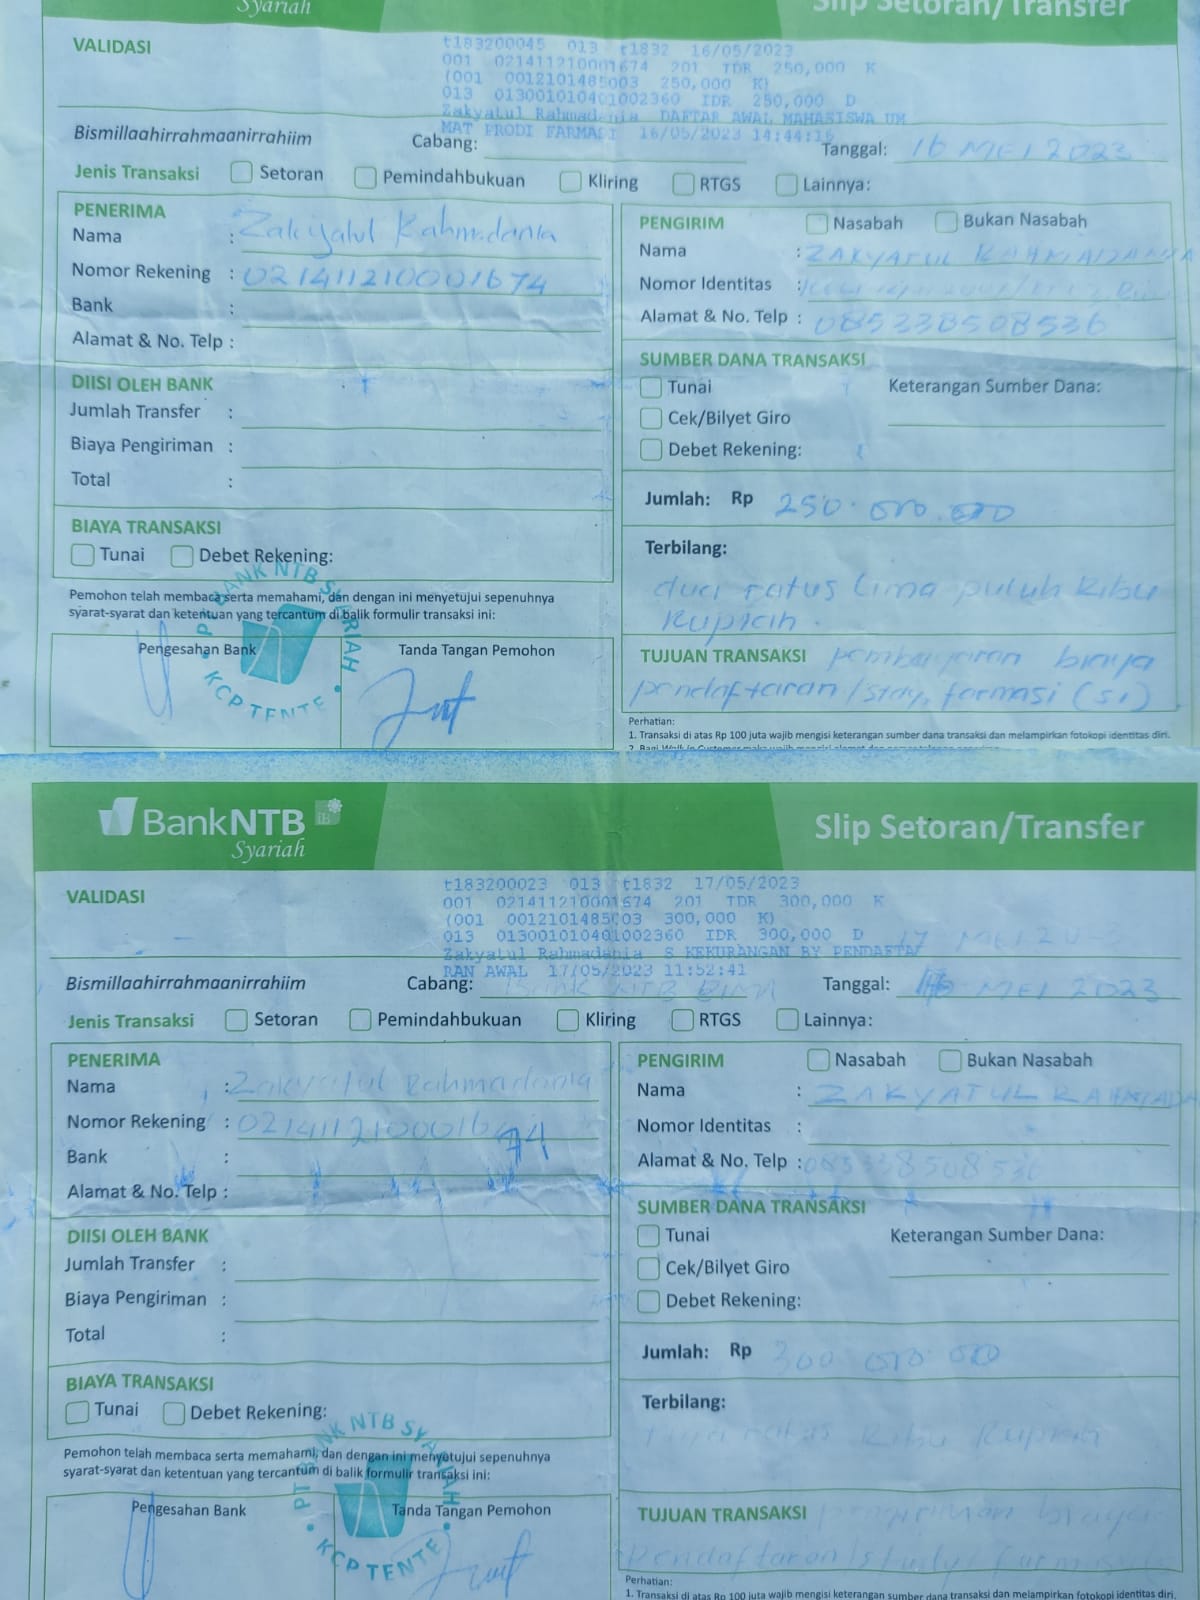 Syariah
Slip Setoran/Transfer
VALIDASI
t183200045 013 t1832 16/05/2023
001 021411210001674 201 TDR 250,000 K
(001 0012101485003 250,000 K)
013 013001010401002360 IDR 250,000 D
Zakyatul Rahmadania DAFTAR AWAL MAHASISWA UM
MAT PRODI FARMASI 16/05/2023 14:44:16
Bismillaahirrahmaanirrahiim
Cabang:
Tanggal: 16 MEI 2023
Jenis Transaksi Setoran Pemindahbukuan Kliring RTGS Lainnya:
PENERIMA
Nama : Zakiyatul Rahmdania
Nomor Rekening : 021411210001674
Bank :
Alamat & No. Telp :
DIISI OLEH BANK
Jumlah Transfer :
Biaya Pengiriman :
Total :
BIAYA TRANSAKSI
Tunai Debet Rekening:
Pemohon telah membaca serta memahami, dan dengan ini menyetujui sepenuhnya
syarat-syarat dan ketentuan yang tercantum di balik formulir transaksi ini:
Pengesahan Bank
PT BANK NTB SYARIAH
KCP TENTE
Tanda Tangan Pemohon
PENGIRIM Nasabah Bukan Nasabah
Nama : ZAKYATUL RAHMADANIA
Nomor Identitas :
Alamat & No. Telp : 085338508536
SUMBER DANA TRANSAKSI
Tunai Keterangan Sumber Dana:
Cek/Bilyet Giro
Debet Rekening:
Jumlah: Rp 250.000.000
Terbilang:
dua ratus lima puluh Ribu
Rupiah.
TUJUAN TRANSAKSI pembayaran biaya
pendaftaran/stay, farmasi (S1)
Perhatian:
1. Transaksi di atas Rp 100 juta wajib mengisi keterangan sumber dana transaksi dan melampirkan fotokopi identitas diri.
BankNTB
Syariah
Slip Setoran/Transfer
VALIDASI
t183200023 013 t1832 17/05/2023
001 021411210001674 201 TDR 300,000 K
(001 0012101485003 300,000 K)
013 013001010401002360 IDR 300,000 D
Zakyatul Rahmadania S KEKURANGAN BY PENDAFTA
RAN AWAL 17/05/2023 11:52:41
17 MEI 2023
Bismillaahirrahmaanirrahiim
Cabang: Bank NTB BIMA
Tanggal: MEI 2023
Jenis Transaksi Setoran Pemindahbukuan Kliring RTGS Lainnya:
PENERIMA
Nama : Zakyatul Rahmadania
Nomor Rekening : 021411210001674
Bank :
Alamat & No. Telp :
DIISI OLEH BANK
Jumlah Transfer :
Biaya Pengiriman :
Total :
BIAYA TRANSAKSI
Tunai Debet Rekening:
Pemohon telah membaca serta memahami, dan dengan ini menyetujui sepenuhnya
syarat-syarat dan ketentuan yang tercantum di balik formulir transaksi ini:
Pengesahan Bank
PT BANK NTB SYARIAH
KCP TENTE
Tanda Tangan Pemohon
PENGIRIM Nasabah Bukan Nasabah
Nama : ZAKYATUL RAHMADA
Nomor Identitas :
Alamat & No. Telp : 085338508536
SUMBER DANA TRANSAKSI
Tunai Keterangan Sumber Dana:
Cek/Bilyet Giro
Debet Rekening:
Jumlah: Rp 300 000 000
Terbilang:
ratus Ribu Rupiah
TUJUAN TRANSAKSI pengiriman biaya
Pendaftaran/study farmasi
Perhatian:
1. Transaksi di atas Rp 100 juta wajib mengisi keterangan sumber dana transaksi dan melampirkan fotokopi identitas diri.